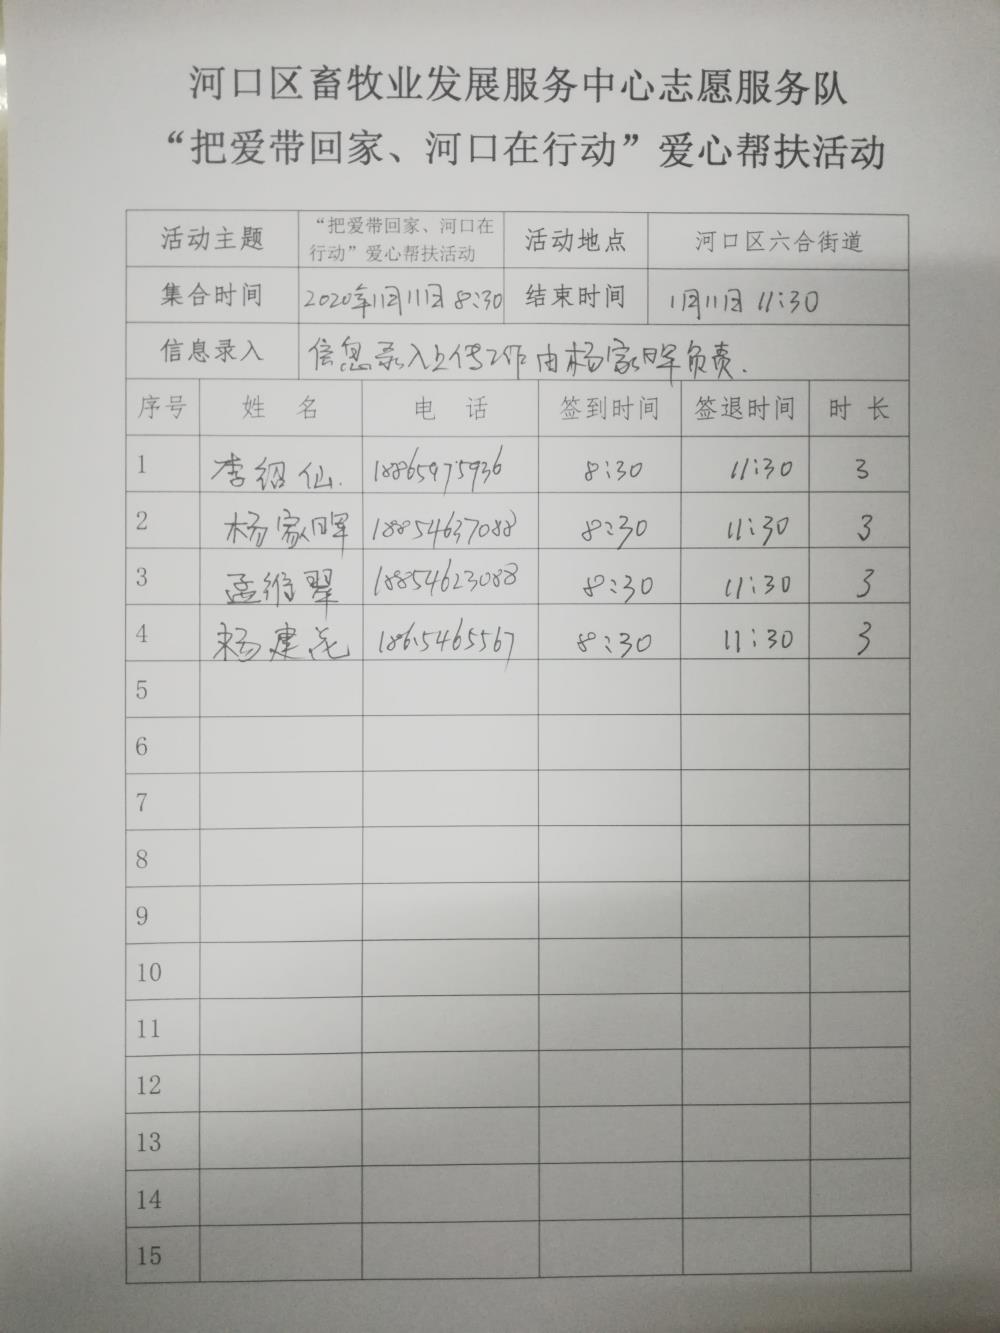 河口区畜牧业发展服务中心志愿服务队
“把爱带回家、河口在行动”爱心帮扶活动
活动主题 “把爱带回家、河口在行动”爱心帮扶活动 活动地点 河口区六合街道
集合时间 2020年11月11日 8:30 结束时间 11月11日 11:30
信息录入 信息录入上传工作由杨家晖负责.
序号 姓 名 电 话 签到时间 签退时间 时 长
1 李绍仙. 18865975936 8:30 11:30 3
2 杨家晖 18854637088 8:30 11:30 3
3 孟维翠 18854623088 8:30 11:30 3
4 杨建花 18615465567 8:30 11:30 3
5
6
7
8
9
10
11
12
13
14
15